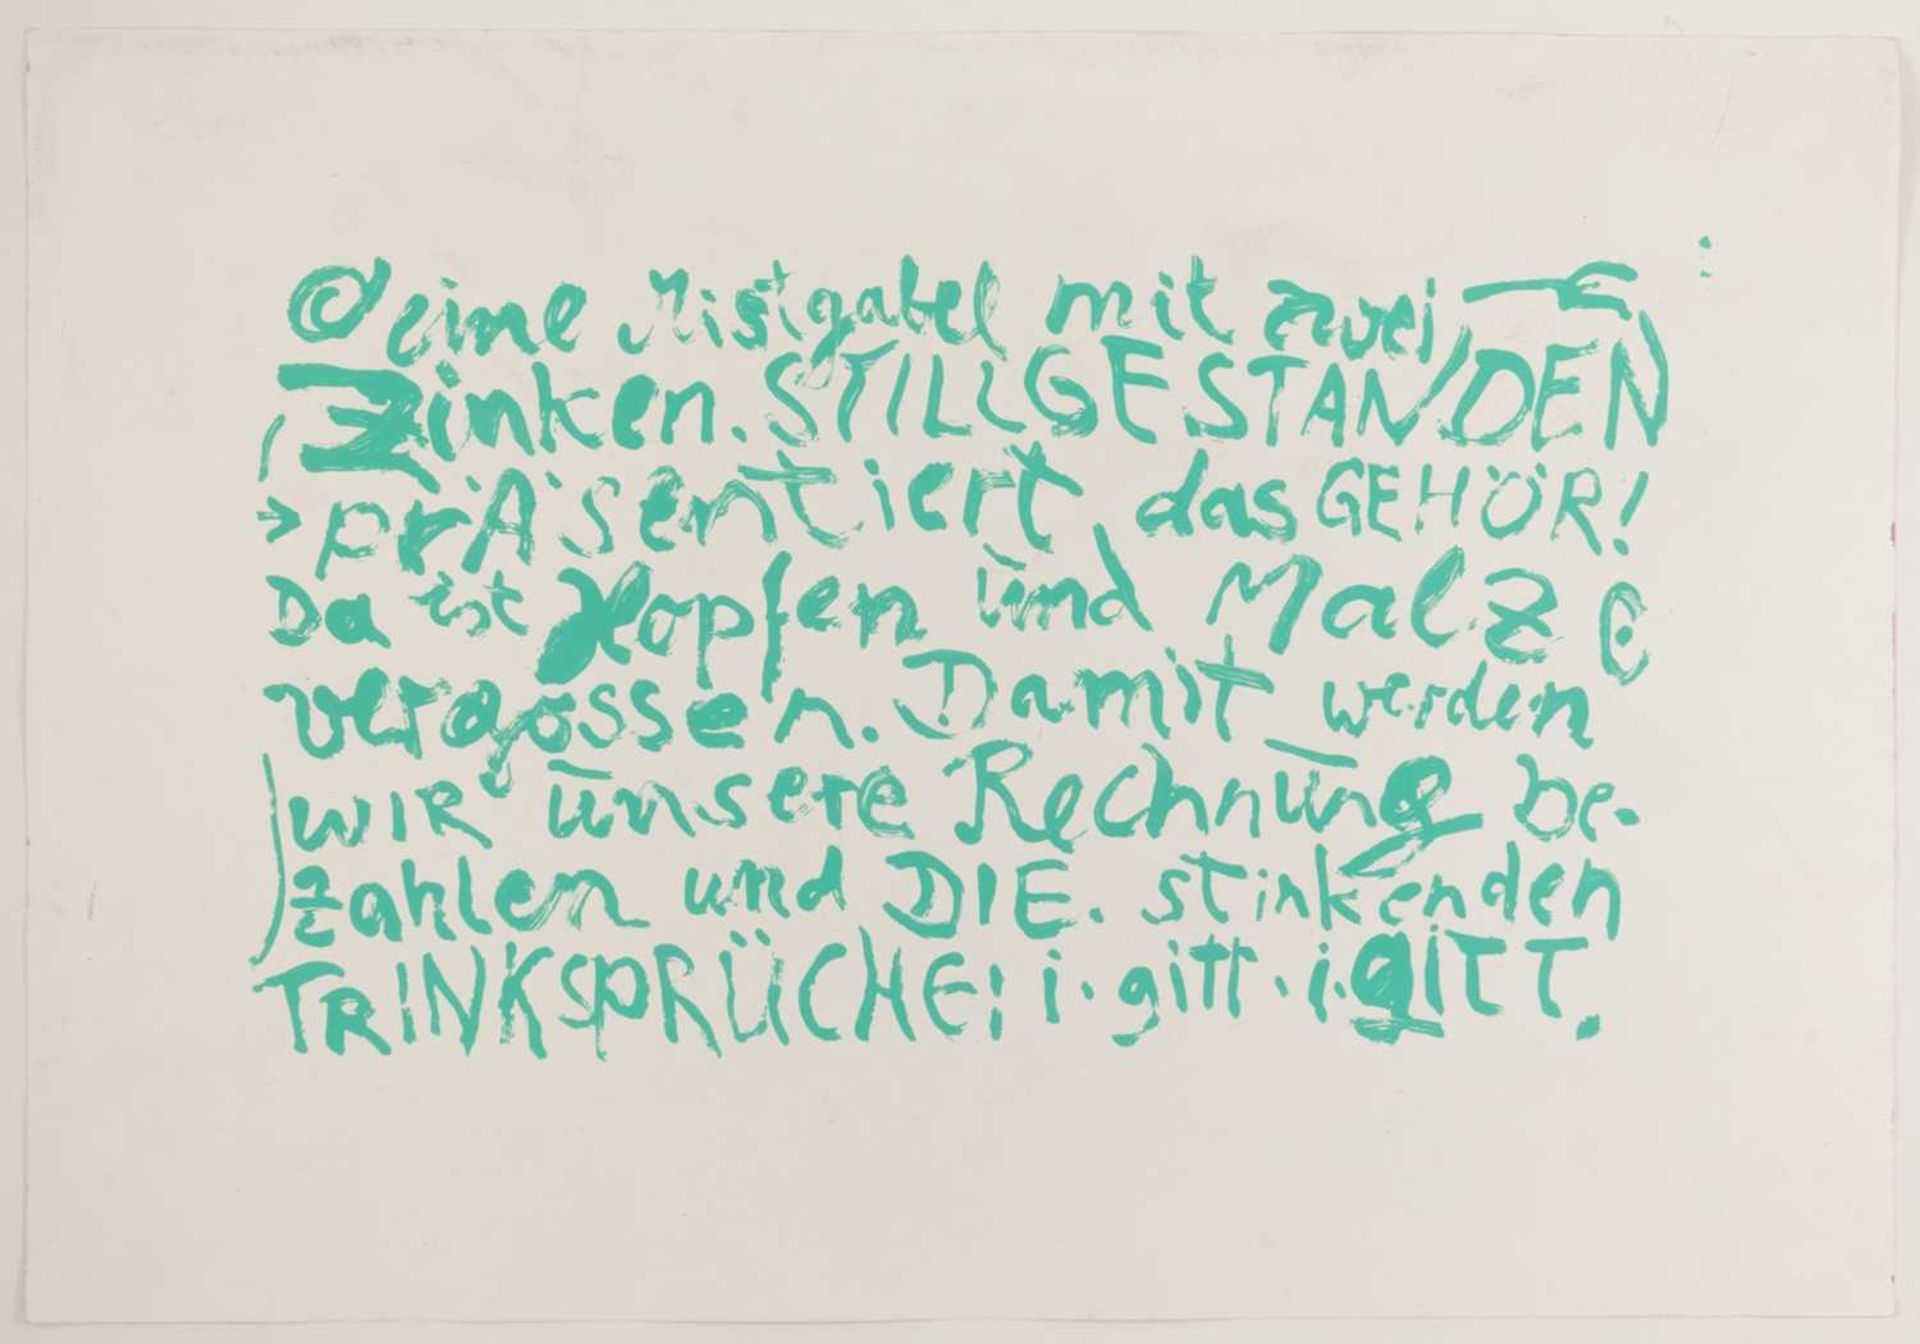 eine Mistgabel mit zwei
Zinken. STILLGESTANDEN
prÄsentiert das GEHÖR!
Da ist Hopfen und Malz
vergossen. Damit werden
WIR unsere Rechnung be-
zahlen und DIE. stinkenden
TRINKSPRÜCHE: i. gitt. i. gITT.